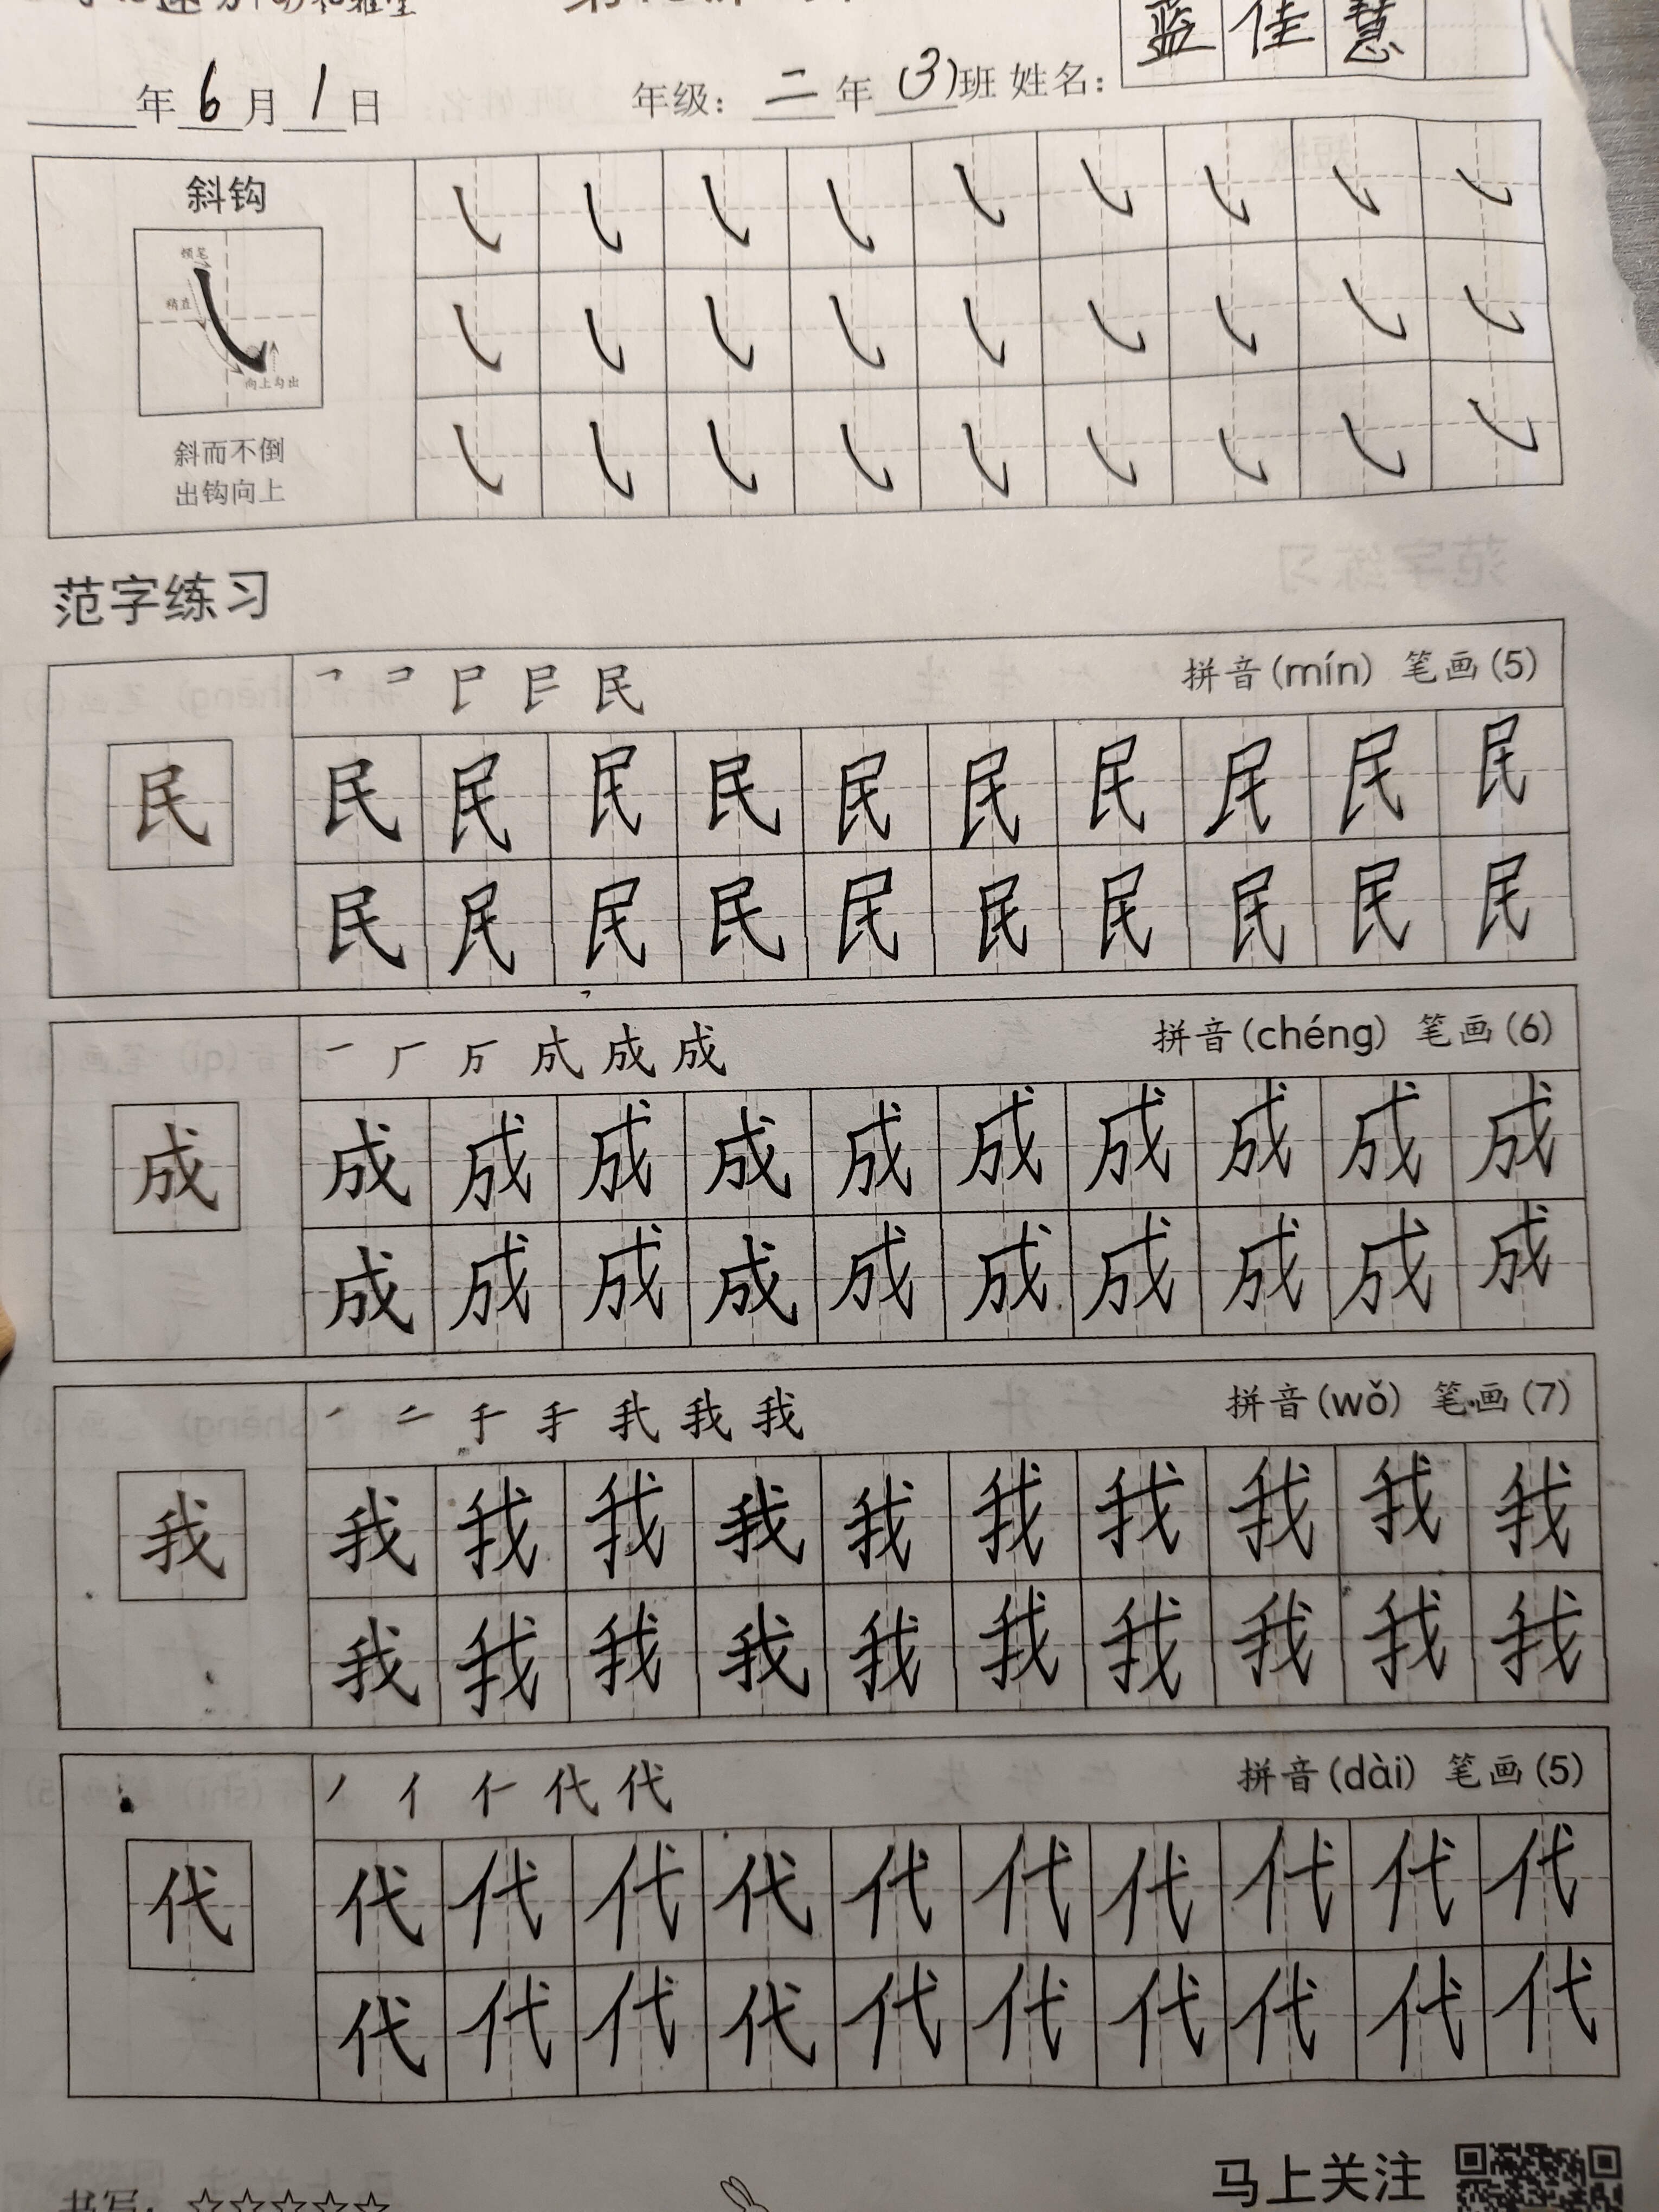 蓝佳慧
年6月1日 年级：二年(3)班 姓名：
斜钩
顿笔
稍直
向上勾出
斜而不倒
出钩向上
范字练习
民 拼音(mín) 笔画(5)
民 民 民 民 民 民 民 民 民 民 民
民 民 民 民 民 民 民 民 民 民
成 拼音(chéng) 笔画(6)
成 成 成 成 成 成 成 成 成 成 成
成 成 成 成 成 成 成 成 成 成
我 拼音(wǒ) 笔画(7)
我 我 我 我 我 我 我 我 我 我 我
我 我 我 我 我 我 我 我 我 我
代 拼音(dài) 笔画(5)
代 代 代 代 代 代 代 代 代 代 代
代 代 代 代 代 代 代 代 代 代
马上关注
书写：☆☆☆☆☆